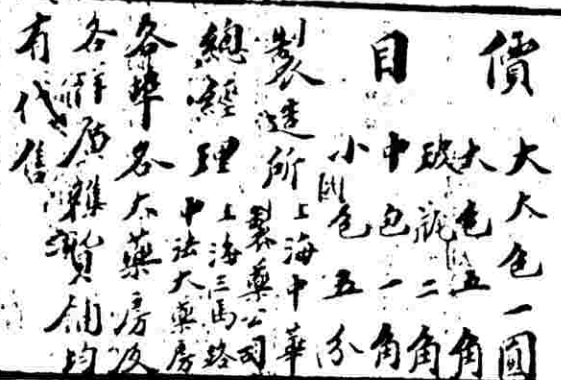 價目
大大包一圓
大包五角
玻瓶二角
中包一角
小包五分
製造所 上海中華製藥公司
總經理 上海三馬路中法大藥房
各埠各大藥房及
各洋廣雜貨鋪均
有代售